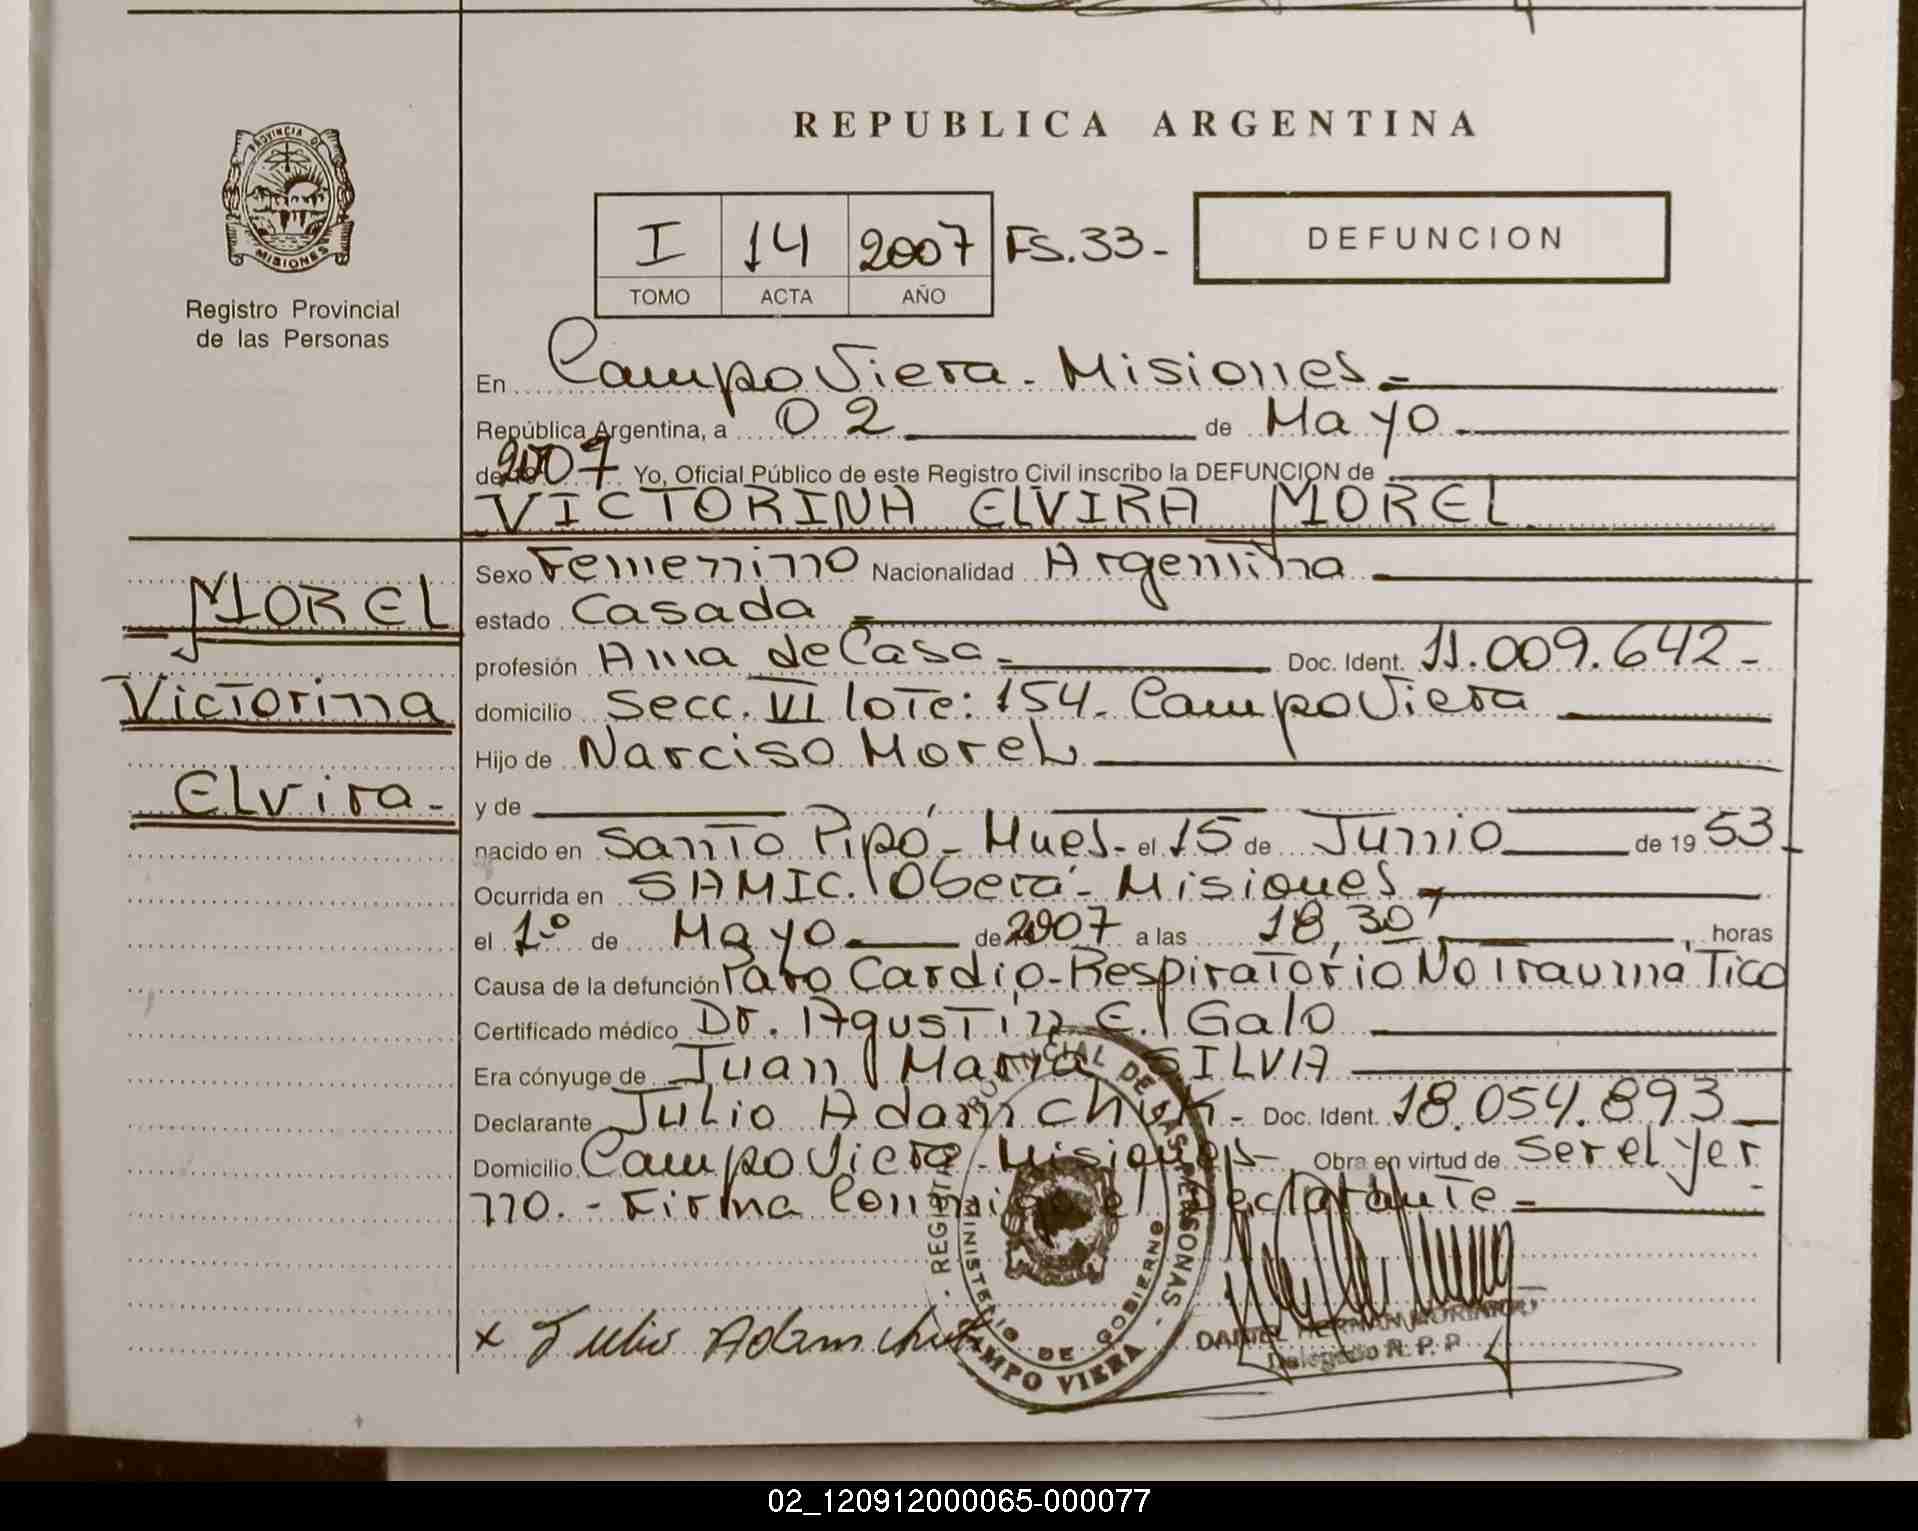 REPUBLICA ARGENTINA
PROVINCIA DE
MISIONES
Registro Provincial
de las Personas
I 14 2007 FS.33-
TOMO ACTA AÑO
DEFUNCION
En Campo Viera - Misiones -
República Argentina, a 02 de Mayo
de 2007 Yo, Oficial Público de este Registro Civil inscribo la DEFUNCION de
VICTORINA ELVIRA MOREL
MOREL
Victorina
Elvira -
Sexo Femenino Nacionalidad Argentina
estado Casada
profesión Ama de Casa - Doc. Ident. 11.009.642 -
domicilio Secc. VI lote: 154 - Campo Viera
Hijo de Narciso Morel
y de
nacido en Santo Pipó - Mnes - el 15 de Junio de 1953
Ocurrida en SAMIC. Oberá - Misiones
el 1º de Mayo de 2007 a las 18,30 horas
Causa de la defunción Paro Cardio-Respiratorio No Traumático
Certificado médico Dr. Agustin E. Galo
Era cónyuge de Juan Maria SILVA
Declarante Julio Adamchuk - Doc. Ident. 18.054.893
Domicilio Campo Viera - Misiones - Obra en virtud de ser el yer
no. - Firma Conmigo el Declarante -
x Julio Adamchuk
REGISTRO PROVINCIAL DE LAS PERSONAS
MINISTERIO DE GOBIERNO
CAMPO VIERA
DANIEL HERNAN
Delegado R. P. P.
02_120912000065-000077